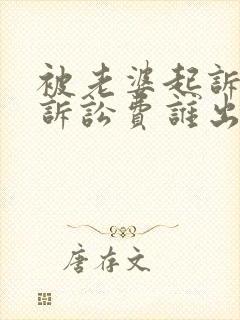 被老婆起訴
訴訟費誰出
唐存文